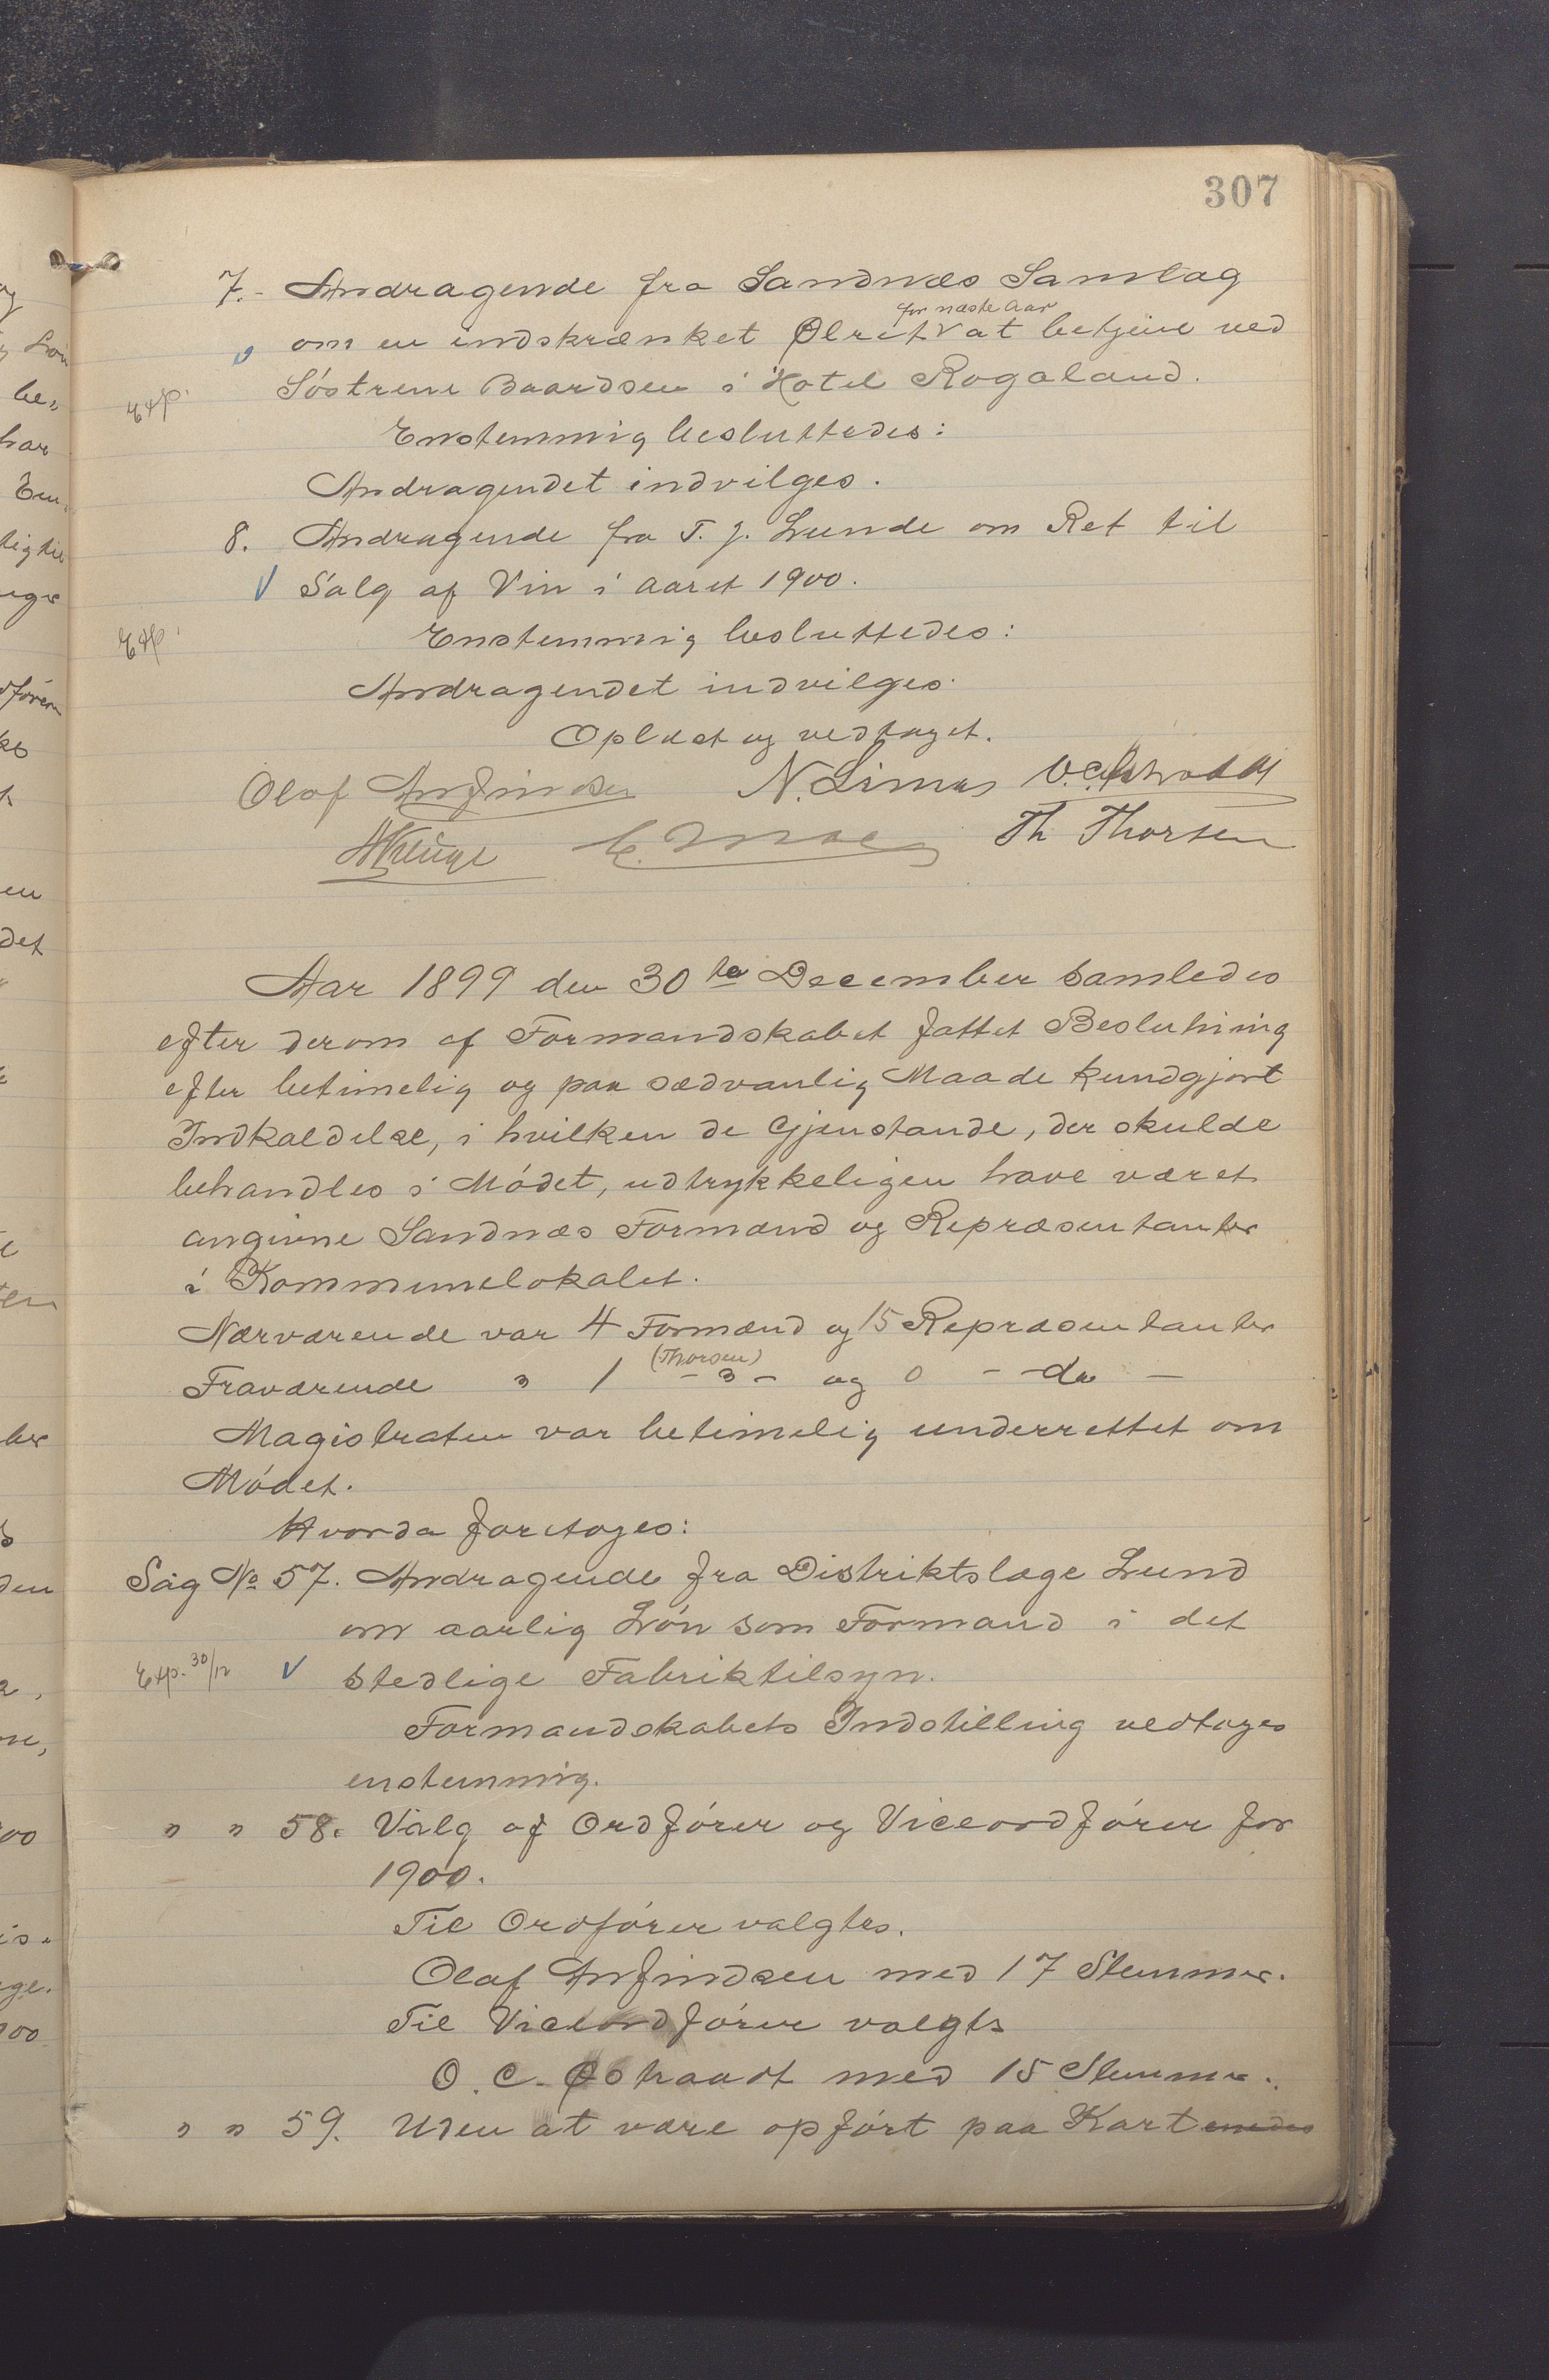 307
7. - Andragende fra Sandnæs Samlag
for næste Aar
om en indskrænket Ølret V at betjene ved
Exp.
Søstrene Baardsen i Hotel Rogaland.
Enstemmig besluttedes:
Andragendet indvilges.
8. Andragende fra T. J. Lunde om Ret til
V Salg af Vin i Aaret 1900.
Exp.
Enstemmig besluttedes:
Andragendet indvilges.
Oplæst og vedtaget.
Olaf Anfindsen N. Limas O. C. Østraadt
Th Thorsen
Aar 1899 den 30te December samledes
efter derom af Formandskabet fattet Beslutning
efter betimelig og paa sædvanlig Maade kundgjort
Indkaldelse, i hvilken de Gjenstande, der skulde
behandles i Mødet, udtrykkeligen have været
angivne Sandnæs Formænd og Repræsentanter
i Kommunelokalet.
Nærværende var 4 Formænd og 15 Repræsentanter
(Thorsen)
Fraværende " 1 - " - og 0 - do -
Magistraten var betimelig underrettet om
Mødet.
Hvorda foretoges:
Sag No 57. Andragende fra Distriktslæge Lund
om aarlig Løn som Formand i det
Exp. 30/12 V stedlige Fabriktilsyn.
Formandskabets Indstilling vedtoges
enstemmig.
" " 58. Valg af Ordfører og Viceordfører for
1900.
Til Ordfører valgtes.
Olaf Anfindsen med 17 Stemmer.
Til Viceordfører valgts
O. C. Østraadt med 15 Stemmer.
" " 59. Uden at være opført paa Kart